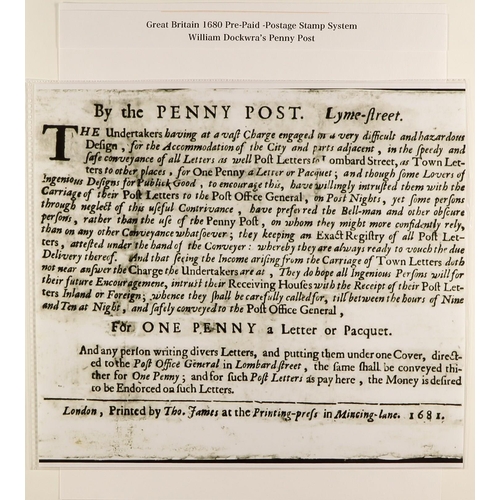 Great Britain 1680 Pre-Paid -Postage Stamp System
William Dockwra's Penny Post
By the PENNY POST. Lyme-ſtreet.
THE Undertakers having at a vaſt Charge engaged in a very difficult and hazardous
Deſign, for the Accommodation of the City and parts adjacent, in the ſpeedy and
ſafe conveyance of all Letters as well Poſt Letters to Lombard Street, as Town Let-
ters to other places, for One Penny a Letter or Pacquet; and though ſome Lovers of
Ingenious Deſigns for Publick Good, to encourage this, have willingly intruſted them with the
Carriage of their Poſt Letters to the Poſt Office General, on Poſt Nights, yet ſome perſons
through neglect of this uſeful Contrivance, have preferred the Bell-man and other obſcure
perſons, rather than the uſe of the Penny Poſt, on whom they might more confidently rely,
than on any other Conveyance whatſoever; they keeping an Exact Regiſtry of all Poſt Let-
ters, atteſted under the hand of the Conveyer: whereby they are always ready to vouch the due
Delivery thereof. And that ſeeing the Income ariſing from the Carriage of Town Letters doth
not near anſwer the Charge the Undertakers are at, They do hope all Ingenious Perſons will for
their future Encouragemene, intruſt their Receiving Houſes with the Receipt of their Poſt Let-
ters Inland or Foreign; whence they ſhall be carefully called for, till between the hours of Nine
and Ten at Night, and ſafely conveyed to the Poſt Office General,
For ONE PENNY a Letter or Pacquet.
And any perſon writing divers Letters, and putting them under one Cover, direct-
ed to the Poſt Office General in Lombard ſtreet, the ſame ſhall be conveyed thi-
ther for One Penny; and for ſuch Poſt Letters as pay here, the Money is deſired
to be Endorſed on ſuch Letters.
London, Printed by Tho. James at the Printing-preſs in Mincing-lane. 1681.